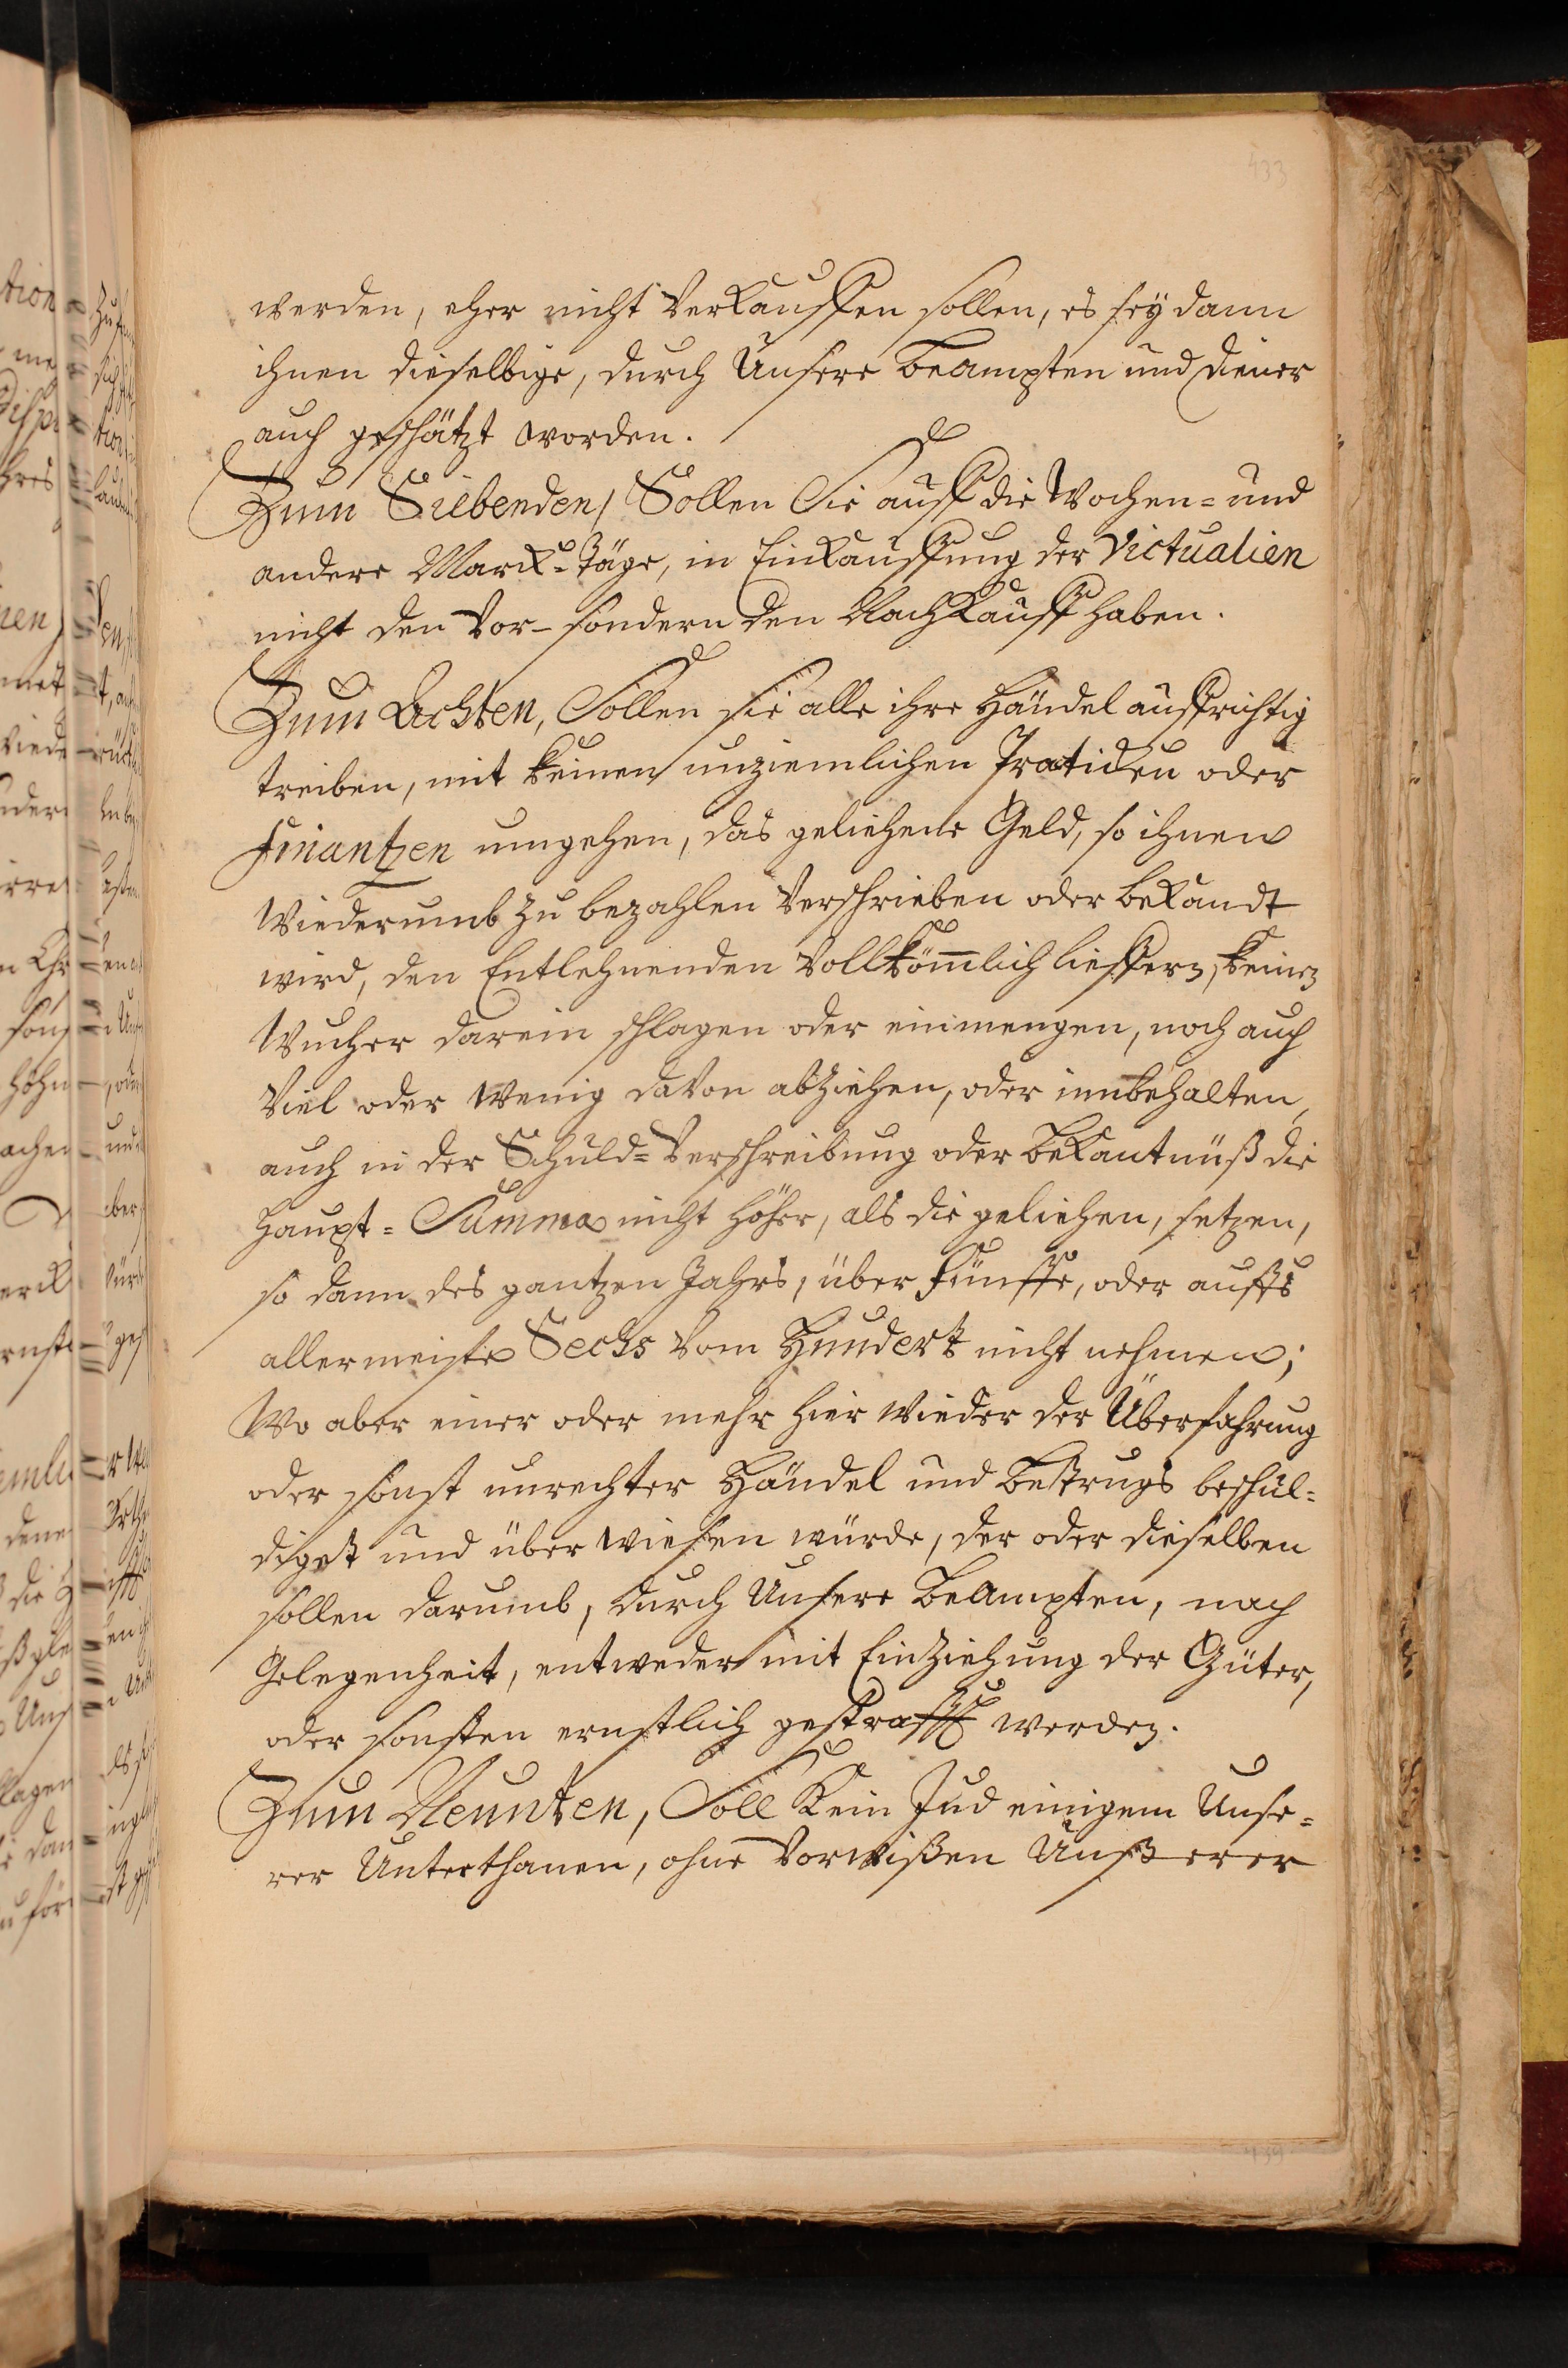 433
werden, eher nicht Verkauffen sollen, es sey dann
ihnen dieselbige, durch Unsere Beampten und Diener
auch geschätzt worden.
Zum Siebenden/ Sollen Sie auff die Wochen= und
andere Marck=Täge, in Einkauffung der Victualien
nicht den Vor- sondern den Nachkauff haben.
Zum Achten, Sollen sie alle ihre Händel auffrichtig
treiben, mit keinen unziemlichen Praticken oder
Finantzen umgehen, das geliehene Geld, so ihnen
Wiederumb zu bezahlen Verschrieben oder bekandt
wird, den Entlehnenden Vollkom̄lich lieffern, keinen
Wucher darein schlagen oder einmengen, noch auch
Viel oder Wenig davon abziehen, oder innbehalten,
auch in der Schuld=Verschreibung oder Bekantnüß die
Haupt=Summa nicht höher, als die geliehen, setzen,
so dann des gantzen Jahrs, über Fünffe, oder auffs
allermeiste Sechs Vom Hundert nicht nehmen;
Wo aber einer oder mehr hier wieder der Überfahrung
oder sonst unrechter Händel und Betrugs beschul=
diget und über wiesen würde, der oder dieselben
sollen darumb, durch Unsere Beampten, nach
Gelegenheit, entweder mit Einziehung der Güter,
oder sonsten ernstlich gestrafft werden.
Zum Neunten, Soll Kein Jud einigem Unse=
rer Unterthanen, ohne Vorwißen Unßerer